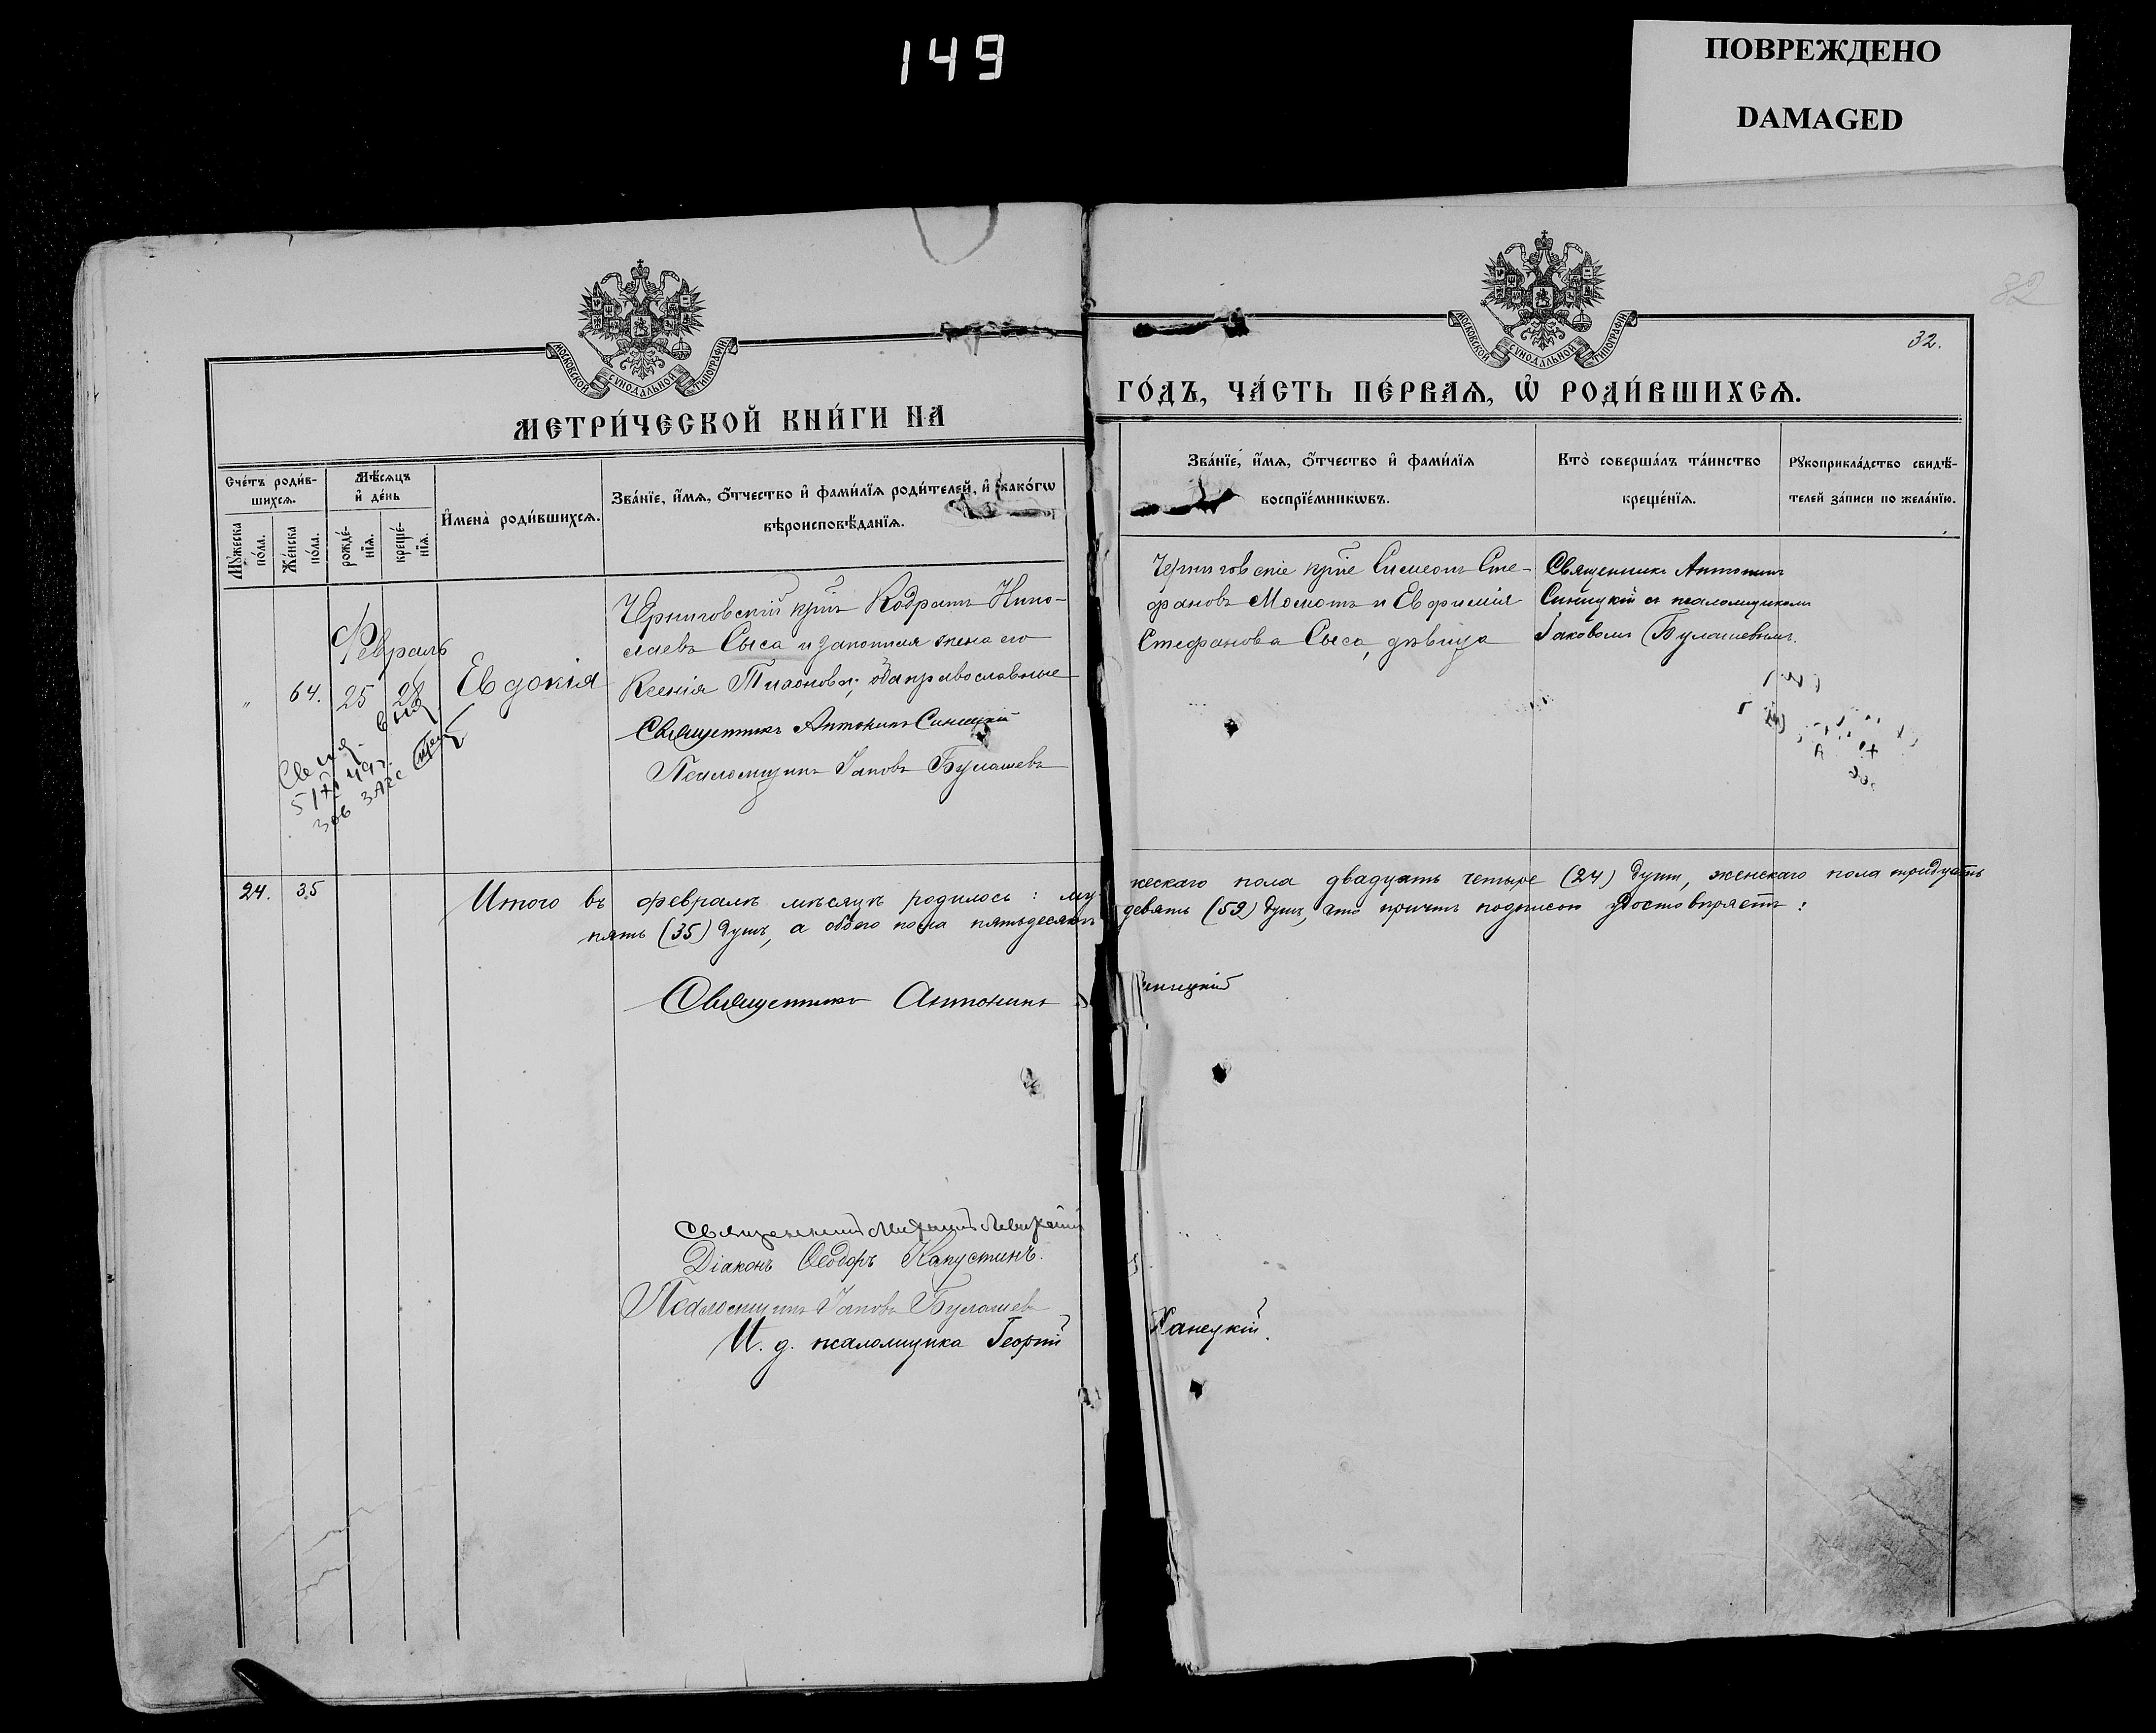 149
ПОВРЕЖДЕНО
DAMAGED
82
32.
МОСКОВСКОЙ СѴНОДАЛЬНОЙ ТИПОГРАФІИ
МОСКОВСКОЙ СѴНОДАЛЬНОЙ ТИПОГРАФІИ
МЕТРИ́ЧЕСКОЙ КНИ́ГИ НА
ГО́ДЪ, ЧА́СТЬ ПЕ́РВАѦ, Ѡ҆ РОДИ́ВШИХСѦ.
Сче́тъ роди́в-
шихсѧ.
Мꙋ́жеска по́ла.
Же́нска по́ла.
Мѣ́сѧцъ
и҆ де́нь
рожде́-
нїѧ.
креще́-
нїѧ.
И҆мена̀ роди́вшихсѧ.
Зва́нїе, и҆́мѧ, ѻ҆́тчество и҆ фами́лїѧ роди́телей, и҆ како́гѡ
вѣроисповѣ́данїѧ.
Зва́нїе, и҆́мѧ, ѻ҆́тчество и҆ фами́лїѧ
воспрїе́мникѡвъ.
Кто̀ соверша́лъ та́инство
креще́нїѧ.
Рꙋкоприкла́дство свидѣ́-
телей за́писи по жела́нїю.
Февраль
" 64. 25 28 Евдокія
Черниговскій крнъ Кодратъ Нико-
лаевъ Сыса и законная жена его
Ксенія Тихонова; оба православные
Священникъ Антонинъ Синицкій
Псаломщикъ Іаковъ Булашевъ
Черниговскіе крне Симеонъ Сте-
фановъ Молотъ и Евфимія
Стефанова Сыса, дѣвица
Священникъ Антонинъ
Синицкій съ псаломщикомъ
Іаковомъ Булашевымъ.
24. 35
Итого въ февралѣ мѣсяцѣ родилось: мужескаго пола двадцать четыре (24) душъ, женскаго пола тридцать
пять (35) душъ, а обоего пола пятьдесятъ девять (59) душъ, что причтъ подписью удостовѣряетъ:
Священникъ Антонинъ Синицкій
Священникъ
Діаконъ Ѳеодоръ Капустинъ.
Псаломщикъ Іаковъ Булашевъ
И. д. псаломщика Георгій Ханецкій.